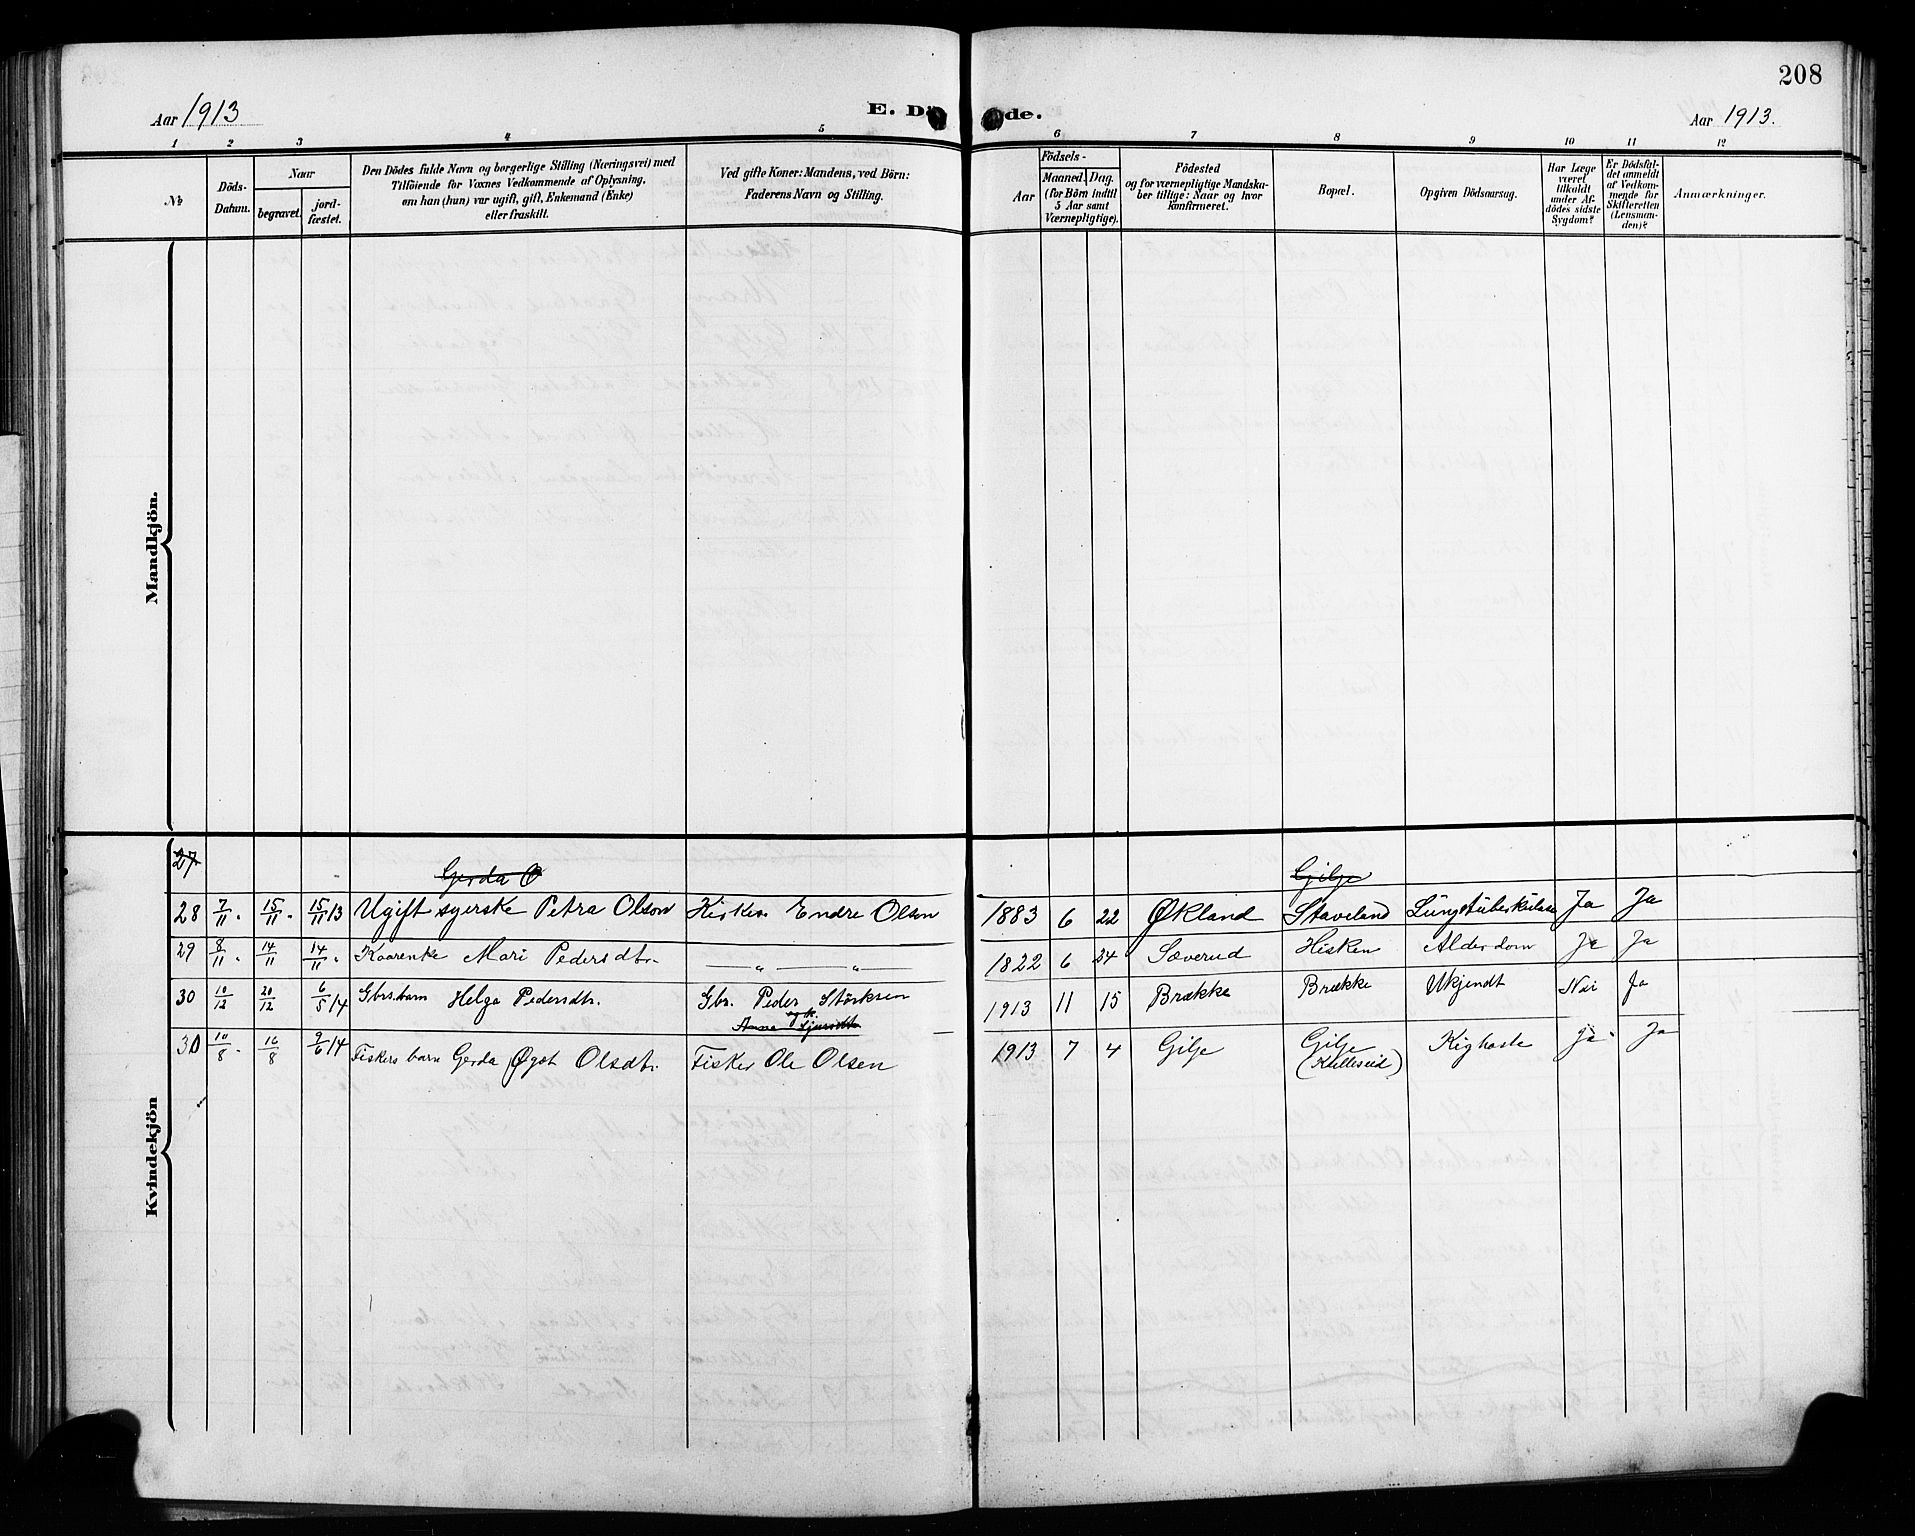 208
Aar 1913
E. Dö de.
Aar 1913.
1 2 3 4 5 6 7 8 9 10 11 12
No
Döds-Datum.
Naar
begravet.
jord-fæstet.
Den Dödes fulde Navn og borgerlige Stilling (Næringsvei) med
Tilföiende for Voxnes Vedkommende af Oplysning,
om han (hun) var ugift, gift, Enkemand (Enke)
eller fraskilt.
Ved gifte Koner: Mandens, ved Börn:
Faderens Navn og Stilling.
Födsels-
Aar
Maaned. Dag.
(for Börn indtil
5 Aar samt
Værnepligtige).
Födested
og for værnepligtige Mandska-
ber tillige: Naar og hvor
konfirmeret.
Bopæl.
Opgiven Dödsaarsag.
Har Læge
været
tilkaldt
under Af-
dödes sidste
Sygdom?
Er Dödsfal-
det anmeldt
af Vedkom-
mende for
Skifteretten
(Lensman-
den)?
Anmærkninger.
Mandkjön.
Kvindekjön
27 Gerda O Gilje
28 7/11 15/11 15/11 13 Ugift syerske Petra Olson Kirkes. Endre Olson 1883 6 22 Økland Staveland Lungetuberkulose Ja Ja
29 8/11 14/11 14/11 Kaarenke Mari Pedersdtr. — " — " — 1822 6 24 Sæverud Hisken Alderdom Ja Ja
30 10/12 20/12 6/5 14 Gbrs. barn Helga Pedersdtr. Gbr. Peder Störksen 1913 11 15 Brække Brække Ukjendt Nei Ja
og k.
Anna Sjursdtr
30 10/8 16/8 9/6 14 Fiskers barn Gerda Øgot Olsdtr. Fisker Ole Olsen 1913 7 4 Gilje Gilje Kighoste Ja Ja
(Kulleseid)